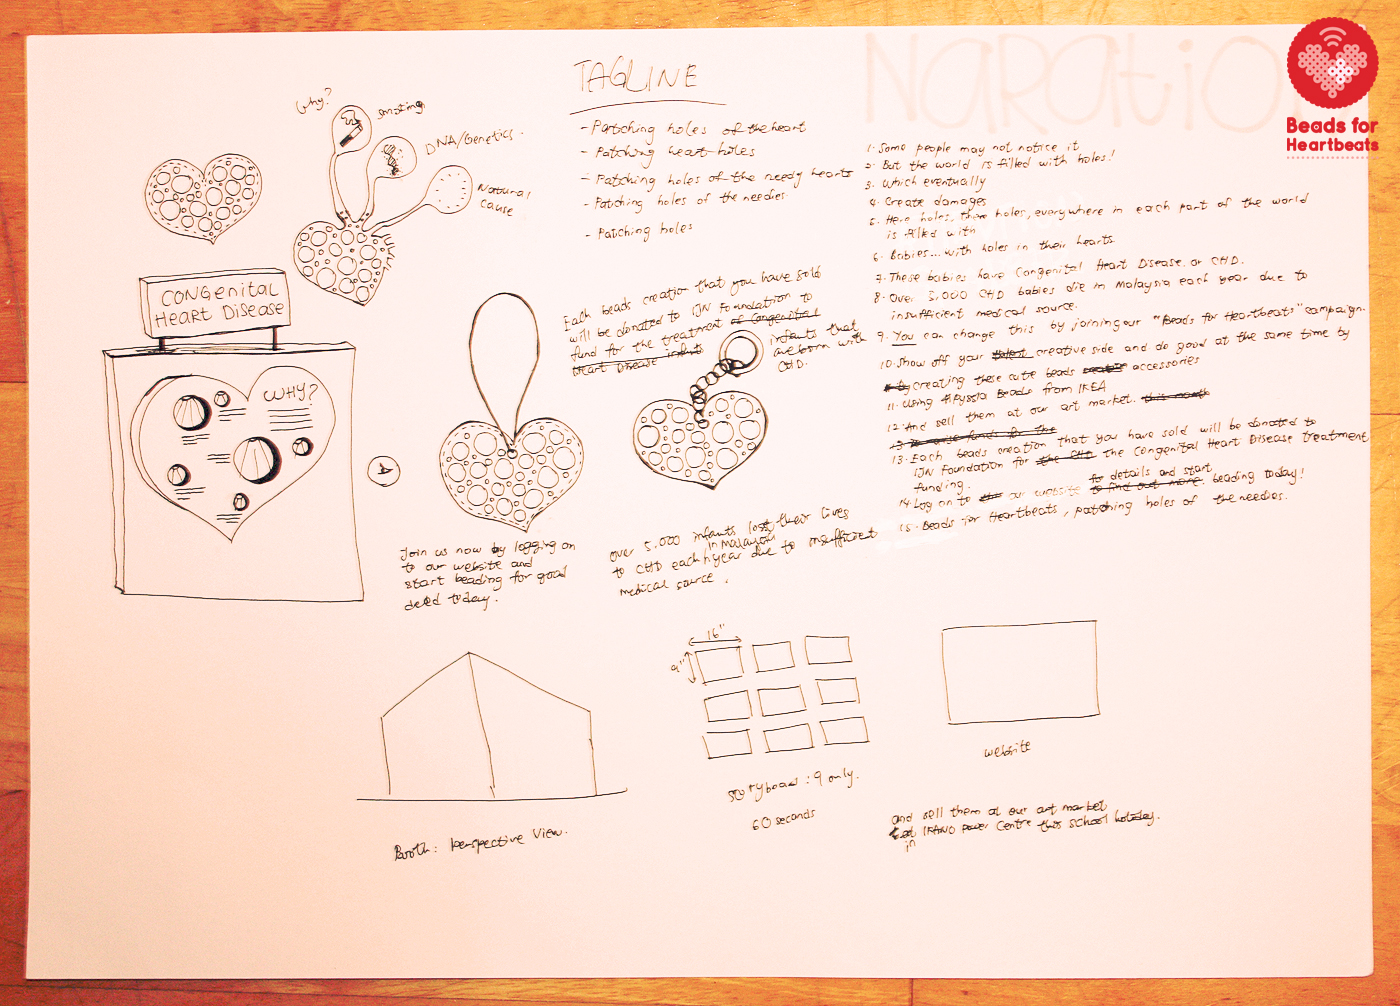 Beads for
Heartbeats
NARatio
Why?
smoking
DNA/Genetics.
Natural
Cause
CONGenital
HEART DISEASE
WHY?
A
TAGLINE
- Patching holes of the heart
- Patching heart holes
- Patching holes of the needy hearts
- Patching holes of the needies
- Patching holes
Each beads creation that you have sold
will be donated to IJN Foundation to
fund for the treatment of Congenital
Heart Disease infants
infants that
are born with
CHD.
Join us now by logging on
to our website and
start beading for good
deed today.
Over 5,000 infants lost their lives
in malaysia
to CHD each year due to insufficient
medical source.
1. Some people may not notice it
2. But the world is filled with holes!
3. Which eventually
4. Create damages
5. Here holes, there holes, everywhere in each part of the world
is filled with
6. Babies... with holes in their hearts
7. These babies have Congenital Heart Disease. or CHD.
8. Over 5,000 CHD babies die in Malaysia each year due to
insufficient medical source.
9. You can change this by joining our "Beads for Heartbeats" campaign.
10. Show off your talent creative side and do good at the same time by
creating these cute beads accessories
11. Using #Pyssla Beads from IKEA
12. And sell them at our art market. this month
13. To raise funds for the
13. Each beads creation that you have sold will be donated to
IJN Foundation for the CHD the Congenital Heart Disease treatment
funding.
for details and start
14. Log on to our website to find out more. beading today!
15. Beads for Heartbeats, patching holes of the needies.
Booth: Perspective View.
16"
9"
storyboard: 9 only.
60 seconds
website
and sell them at our art market
at IKANO power Centre this school holiday.
in